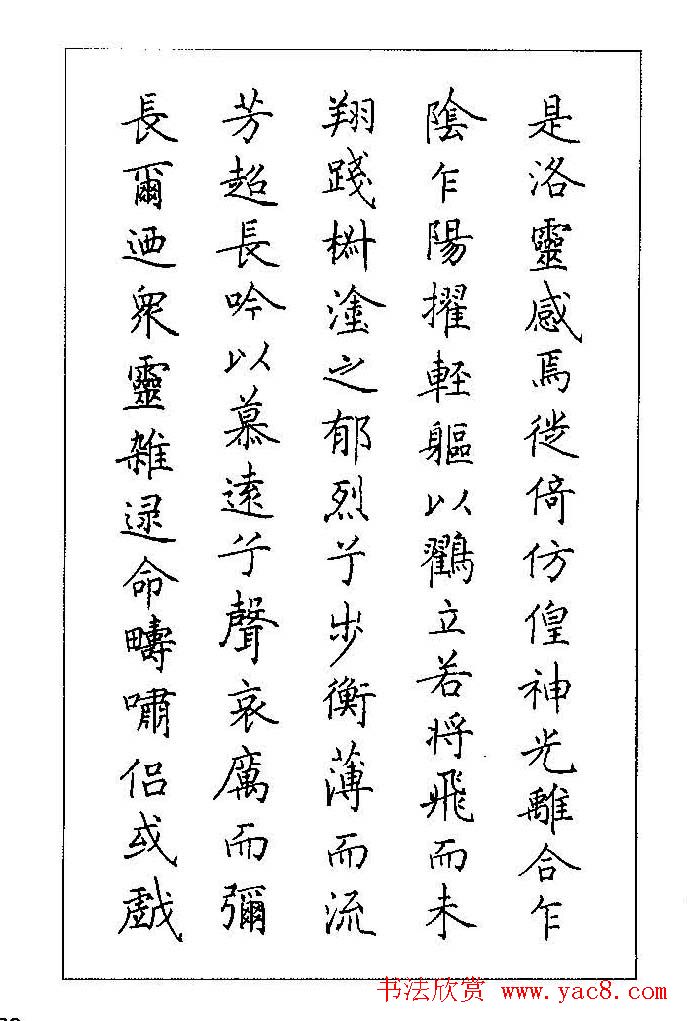 是洛靈感焉徙倚仿偟神光離合乍
隂乍陽擢輕軀以鸛立若将飛而未
翔踐椒塗之郁烈兮步衡薄而流
芳超長吟以慕遠兮聲哀厲而彌
長爾迺衆靈雜遝命疇嘯侣或戲
书法欣赏 www.yac8.com